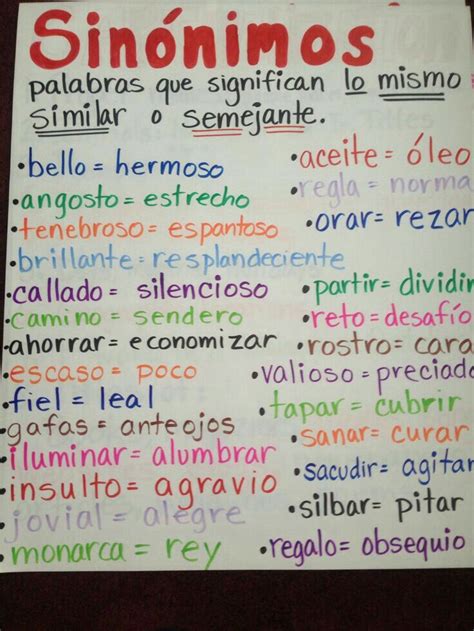 Sinónimos
palabras que significan lo mismo
similar o semejante.
•bello = hermoso
•angosto = estrecho
•tenebroso = espantoso
•brillante = resplandeciente
•callado = silencioso
•camino = sendero
•ahorrar = economizar
•escaso = poco
•fiel = leal
•gafas = anteojos
•iluminar = alumbrar
•insulto = agravio
•jovial = alegre
•monarca = rey
•aceite = óleo
•regla = norma
•orar = rezar
•partir = dividir
•reto = desafío
•rostro = cara
•valioso = preciado
•tapar = cubrir
•sanar = curar
•sacudir = agitar
•silbar = pitar
•regalo = obsequio